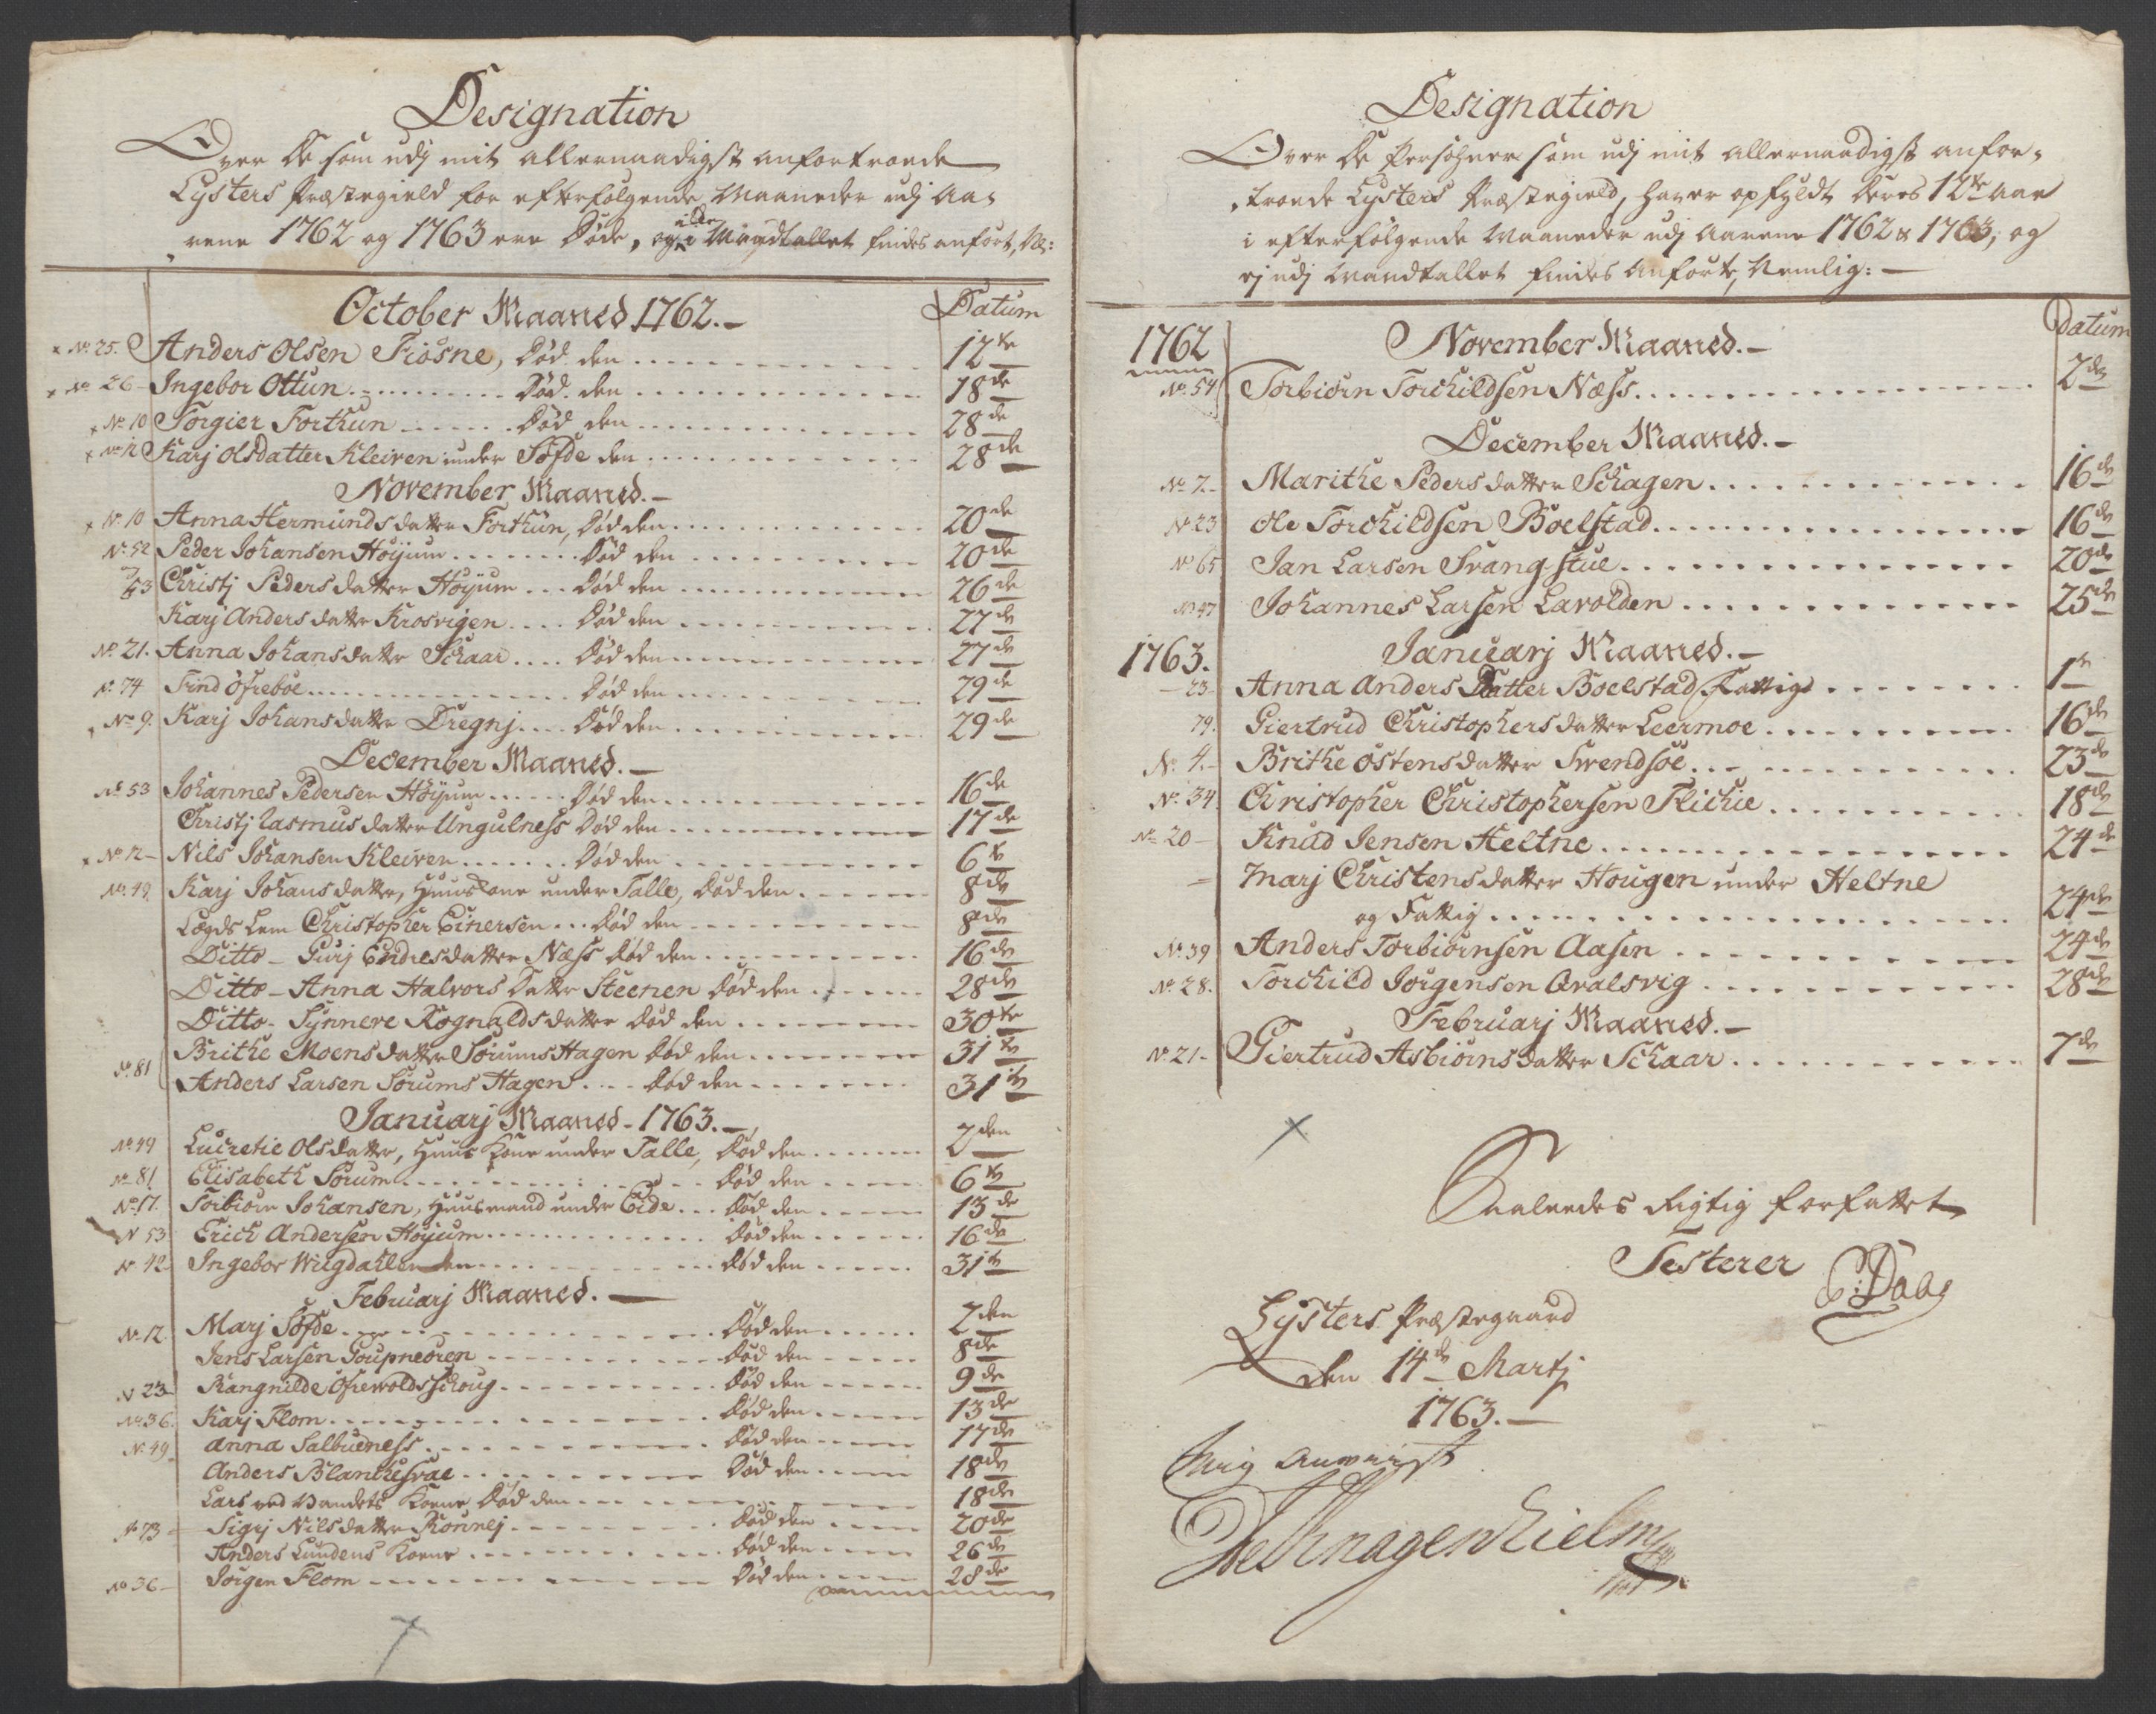 Designation
Over De som udj mit allernaadigst anfortroede
Lysters Præstegield for efterfølgende Maaneder udj Aa-
rene 1762 og 1763 ere Døde, og i Mandtallet findes anført, Nl:
October Maaned 1762.- Datum
No 25. Anders Olsen Fiøsne, Død den 12te
No 26 Ingebor Ottun Død den 18de
No 10 Torgier Forthun Død den 28de
No 12 Karj Olsdatter Kleiven under Søfde den 28de
November Maaned.-
No 10 Anna Hermundsdatter Forthun, Død den 20de
No 52 Peder Johansen Høyum Død den 20de
53 Christj Pedersdatter Høyum Død den 26de
Karj Andersdatter Krosvigen Død den 27de
No 21. Anna Johansdatter Schaar Død den 27de
No 74 Find Øfrebøe Død den 29de
No 9. Karj Johansdatter Dregnj Død den 29de
December Maaned.-
No 53 Johannes Pedersen Høyum Død den 16de
Christj Rasmusdatter Ungulness Død den 17de
No 12 Nils Johansen Kleiven Død den 6te
No 49 Karj Johansdatter, Huus Kone under Talle, Død den 8de
Lægds Lem Christopher Einersen Død den 8de
Ditto - Gurj Endresdatter Næss Død den 16de
Ditto - Anna Halvors Datter Steenen Død den 28de
Ditto - Synneve Rognaldsdatter Død den 30te
Brithe Moensdatter Sørums Hagen Død den 31te
No 81 Anders Larsen Sørums Hagen Død den 31te
Januarj Maaned - 1763.-
No 49 Lucretie Olsdatter, Huus Kone under Talle, Død den 2den
No 81 Elisabeth Sørum Død den 6te
No 17. Torbiørn Johansen, Huusmand under Eide Død den 13de
N 53 Erich Andersen Høyum Død den 16de
N 42 Ingebor Wiigdahlen den Død den 31te
Februarj Maaned.-
No 12 Marj Søfde Død den 2den
Jens Larsen Goupneøren Død den 8de
N 23 Rangnilde Øfrevoldsschoug Død den 9de
No 36. Karj Flom Død den 13de
No 49 Anna Salbueness Død den 17de
Anders Blanchesvae Død den 18de
Lars ved Vandets Koene Død den 18de
N 73 Sigrj Nilsdatter Rønnej Død den 20de
Anders Lundens Koene Død den 26de
No 36 Jørgen Flom Død den 28de
Designation
Over De Persohner som udj mit allernaadigst anfor-
troede Lysters Præstegield, haver opfyldt deres 12te Aar
i efterfølgende Maaneder udj Aarene 1762 & 1763, og
ej udj Mandtallet findes Anførte, Nemlig:-
1762 November Maaned.- Datum
No 54 Torbiørn Torchildsen Næss 2den
December Maaned.-
No 7 Marithe Pedersdatter Schagen 16de
No 23 Ole Torchildsen Boelstad 16de
No 65 Jan Larsen Svangstue 20de
No 47 Johannes Larsen Lavolden 25de
1763. Januarj Maaned.-
23 Anna Anders Datter Boelstad, Fattig 1te
79. Giertrud Christophersdatter Leermoe 16de
No 4. Brithe Østensdatter Svendsøe 23de
No 34 Christopher Christophersen Flichie 18de
No 20 Knud Jensen Heltne 24de
Marj Christensdatter Hougen under Heltne
og Fattig 24de
No 39 Anders Torbiørnsen Aasen 24de
No 28. Torchild Jørgensen Qvalsvig 28de
Februarj Maaned.-
No 21 Giertrud Asbiørnsdatter Schaar 7de
Saaledes Rigtig forfattet
Testerer
C: Dabs
Lysters Præstegaard
den 14de Martj
1763.-
Anvist
de Knagenhielm